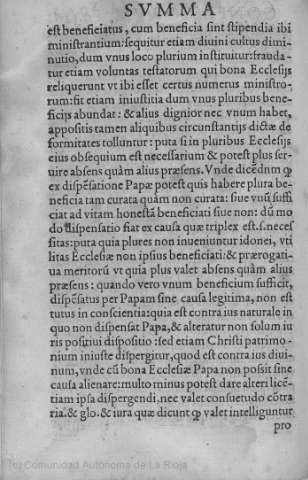 SVMMA
est beneficiatus, cum beneficia sint stipendia ibi
ministrantium: sequitur etiam diuini cultus dimi-
nutio, dum vnus loco plurium instituitur: frauda-
tur etiam voluntas testatorum qui bona Ecclesijs
relsquerunt vt ibi esset certus numerus ministro-
rum: fit etiam iniustitia dum vnus pluribus bene-
ficijs abundat: & alius dignior nec vnum habet,
appositis tamen aliquibus circunstantijs dictæ de
formitates tolluntur: puta si in pluribus Ecclesijs
eius obsequium est necessarium & potest plus ser-
uire absens quàm alius præsens. Vnde dicẽdum ꝙ
ex dispẽsatione Papæ potest quis habere plura be-
neficia tam curata quàm non curata: siue vnũ suffi
ciat ad vitam honestã beneficiati siue non: dũ mo
do dispensatio fiat ex causa quæ triplex est. s. neces
sitas: puta quia plures non inueniuntur idonei, vti
litas Ecclesiæ non ipsius beneficiati: & prærogati-
ua meritorũ vt quia plus valet absens quàm alius
præsens: quando vero vnum beneficium sufficit,
dispẽsatus per Papam sine causa legitima, non est
tutus in conscientia: quia est contra ius naturale in
quo non dispensat Papa, & alteratur non solum iu
ris positiui dispositio: sed etiam Christi patrimo-
nium iniuste dispergitur, quod est contra ius diui-
num, vnde cũ bona Ecclesiæ Papa non possit sine
causa alienare: multo minus potest dare alteri licẽ-
tiam ipsa dispergendi. nec valet consuetudo cõtra
ria. & glo. & iura quæ dicunt ꝙ valet intelliguntur
pro
(c) Comunidad Autónoma de La Rioja